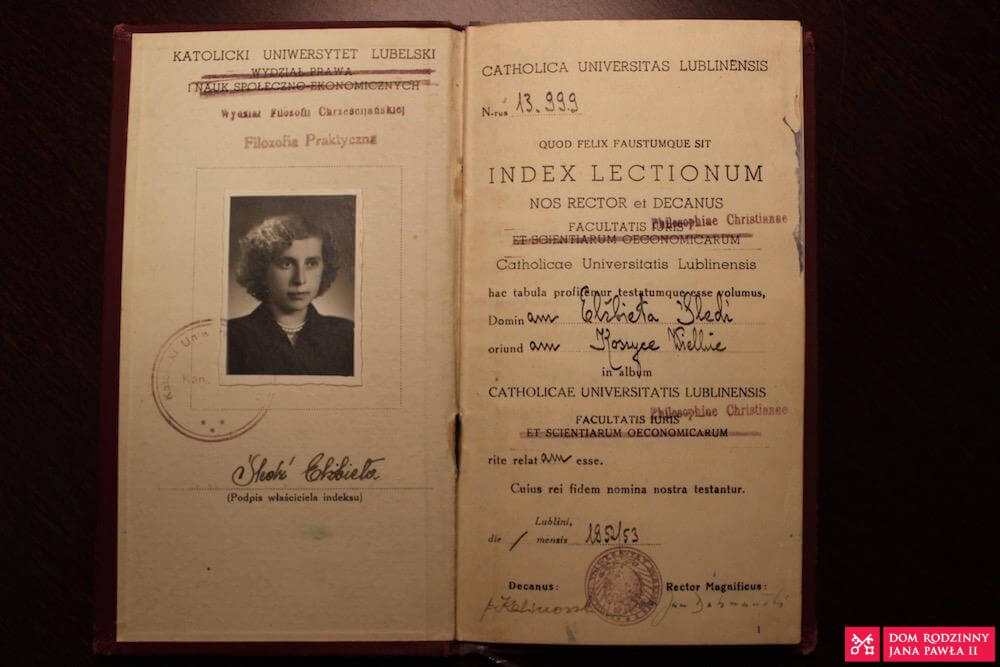 KATOLICKI UNIWERSYTET LUBELSKI
WYDZIAŁ PRAWA
I NAUK SPOŁECZNO-EKONOMICZNYCH
Wydział Filozofii Chrześcijańskiej
Filozofia Praktyczna
Śledź Elżbieta
(Podpis właściciela indeksu)
CATHOLICA UNIVERSITAS LUBLINENSIS
N-rus 13.999
QUOD FELIX FAUSTUMQUE SIT
INDEX LECTIONUM
NOS RECTOR et DECANUS
FACULTATIS IURIS Philosophiae Christianae
ET SCIENTIARUM OECONOMICARUM
Catholicae Universitatis Lublinensis
hac tabula profitemur testatumque esse volumus,
Domin am Elżbieta Śledź
oriund am Wielkie
in album
CATHOLICAE UNIVERSITATIS LUBLINENSIS
FACULTATIS IURIS Philosophiae Christianae
ET SCIENTIARUM OECONOMICARUM
rite relat am esse.
Cuius rei fidem nomina nostra testantur.
Lublini,
die / mensis 1952/53
Decanus: Rector Magnificus:
1
DOM RODZINNY
JANA PAWŁA II